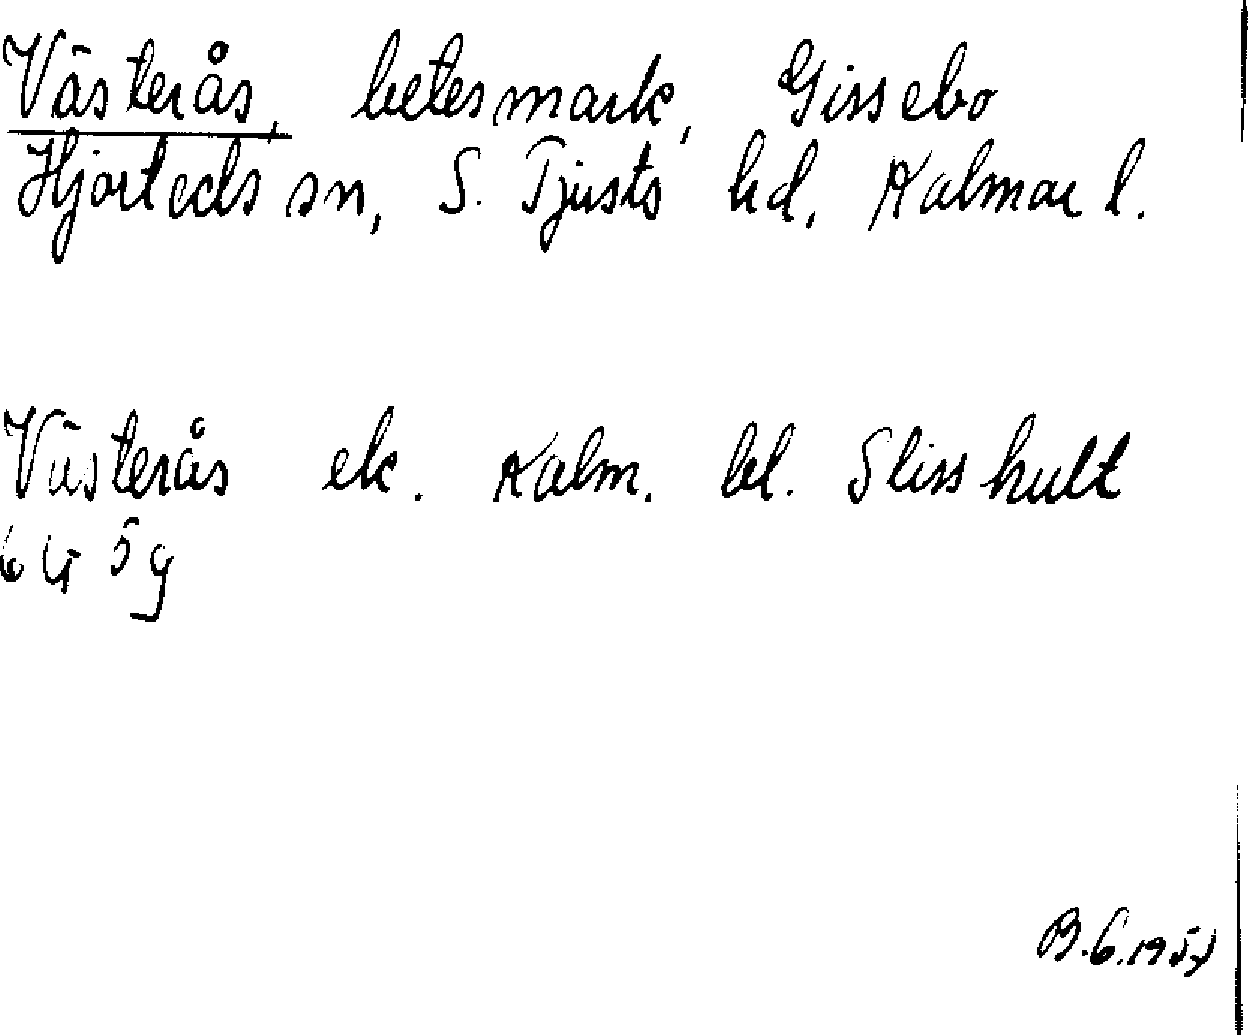 Västerås, betesmark, Gissebo
Hjorteds sn, S. Tjusts hd, Kalmar l.
Västerås ek. Kalm. bl. Slisshult
6G 5g